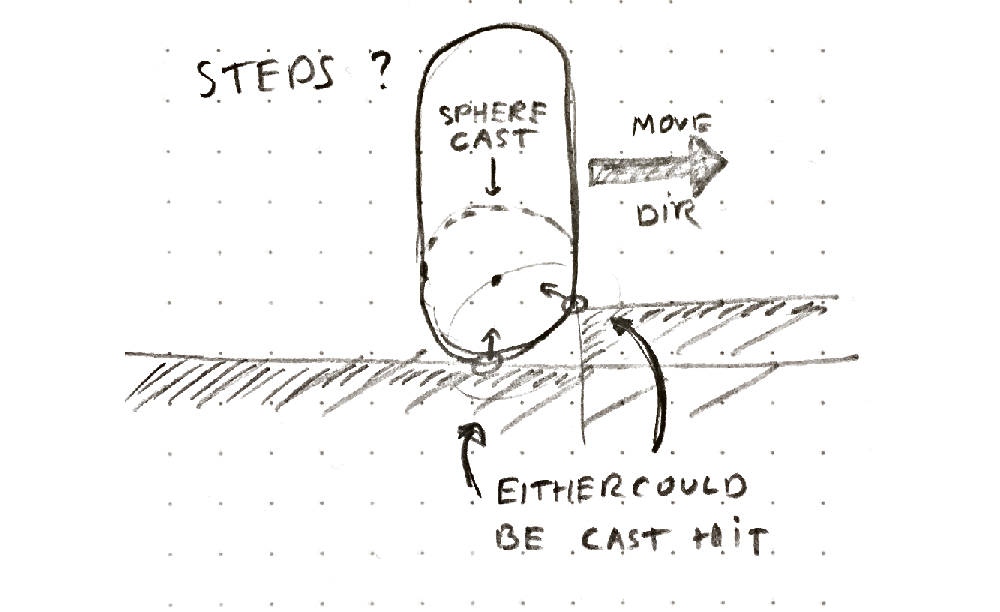 STEPS ?
SPHERE
CAST
MOVE
DIR
EITHER COULD
BE CAST HIT